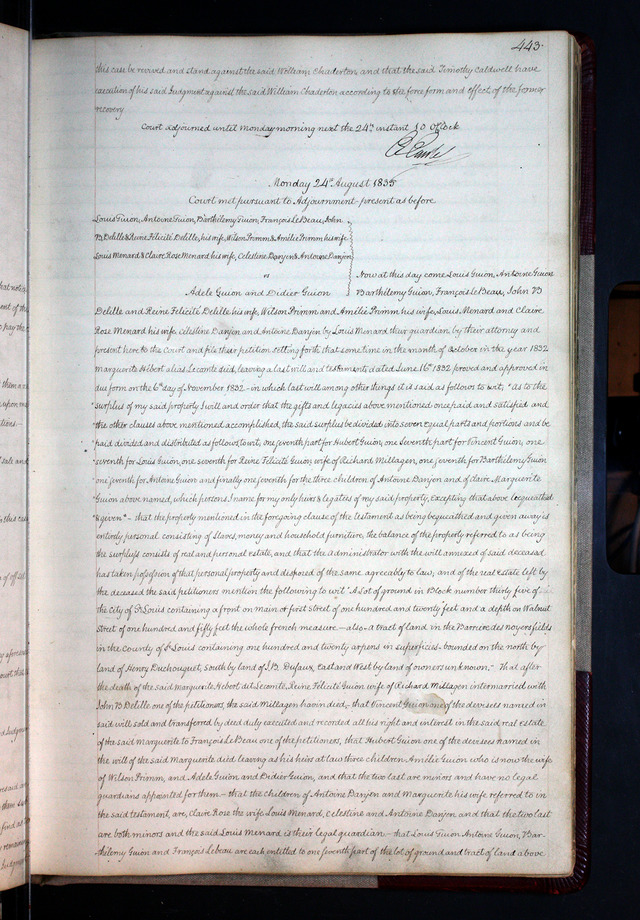 443.
this case be revived and stand against the said William Chaderton, and that the said Timothy Caldwell have
execution of his said Judgment against the said William Chaderton according to the force form and effect of the former
recovery
Court adjourned until monday morning next the 24th instant 10 O'Clock
Monday 24th August 1835
Court met pursuant to Adjournment present as before
Louis Guion, Antoine Guion, Barthélemy Guion, François LeBeau, John
B Delille & Reine Felicité Delille, his wife, Wilson Primm & Amélie Primm his wife
Louis Menard & Claire Rose Menard his wife, Celestine Danjen & Antoine Danjen
vs
Now at this day come Louis Guion, Antoine Guion
Adele Guion and Didier Guion
Barthélemy Guion, François LeBeau, John B
Delille and Reine Felicité Delille his wife, Wilson Primm and Amélie Primm his wife, Louis Menard and Claire
Rose Menard his wife, Celestine Danjen and Antoine Danjen by Louis Menard their guardian by their attorney and
present here to the Court and file their petition setting forth that some time in the month of October in the year 1832
Marguerite Hébert alias Lecomte died, leaving a last will and testament dated June 16th 1832 proved and approved in
due form on the 6th day of November 1832 - in which last will among other things it is said as follows to wit; "As to the
surplus of my said property I will and order that the gifts and legacies above mentioned once paid and satisfied and
the other clauses above mentioned accomplished, the said surplus be divided into seven equal parts and portions and be
paid divided and distributed as follows to wit; one seventh part for Hubert Guion, one Seventh part for Vincent Guion, one
seventh for Louis Guion, one seventh for Reine Felicité Guion, wife of Richard Millagen, one seventh for Barthélemy Guion
one seventh for Antoine Guion and finally one seventh for the three children of Antoine Danjen and of Claire Marguerite
Guion above named, which persons I name for my only heirs & legatees of my said property, excepting that above bequeathed
& given" - that the property mentioned in the foregoing clause of the testament as being bequeathed and given away is
entirely personal consisting of slaves, money and household furniture, the balance of the property referred to as being
the surplus consists of real and personal estate, and that the administrator with the will annexed of said deceased
has taken possession of that personal property and disposed of the same agreeably to law; and of the real estate left by
the deceased the said petitioners mention the following to wit "A lot of ground in Block number thirty five of
the city of St Louis containing a front on main or first street of one hundred and twenty feet and a depth on Walnut
street of one hundred and fifty feet the whole french measure - also a tract of land in the Barriere des noyers fields
in the County of St Louis containing one hundred and twenty arpens in superficies, bounded on the north by
land of Henry Duchouquet, South by land of J.B. Dufaux, East and West by land of owners unknown, - That after
the death of the said marguerite Hebert dit Lecomte, Reine Felicité Guion wife of Richard Millagen intermarried with
John B Delille one of the petitioners, the said Millagen having died, - that Vincent Guion one of the devisees named in
said will sold and transferred by deed duly executed and recorded all his right and interest in the said real estate
of the said Marguerite to François LeBeau one of the petitioners, that Hubert Guion one of the devisees named in
the will of the said Marguerite died leaving as his heirs at law three children Amélie Guion who is now the wife
of Wilson Primm, and Adele Guion and Didier Guion, and that the two last are minors and have no legal
guardians appointed for them - that the children of Antoine Danjen and Marguerite his wife referred to in
the said testament, are, Claire Rose the wife Louis Menard, Celestine and Antoine Danjen and that the two last
are both minors and the said Louis Menard is their legal guardian, - that Louis Guion Antoine Guion, Bar-
thélemy Guion and François Lebeau are each entitled to one seventh part of the lot of ground and tract of land above